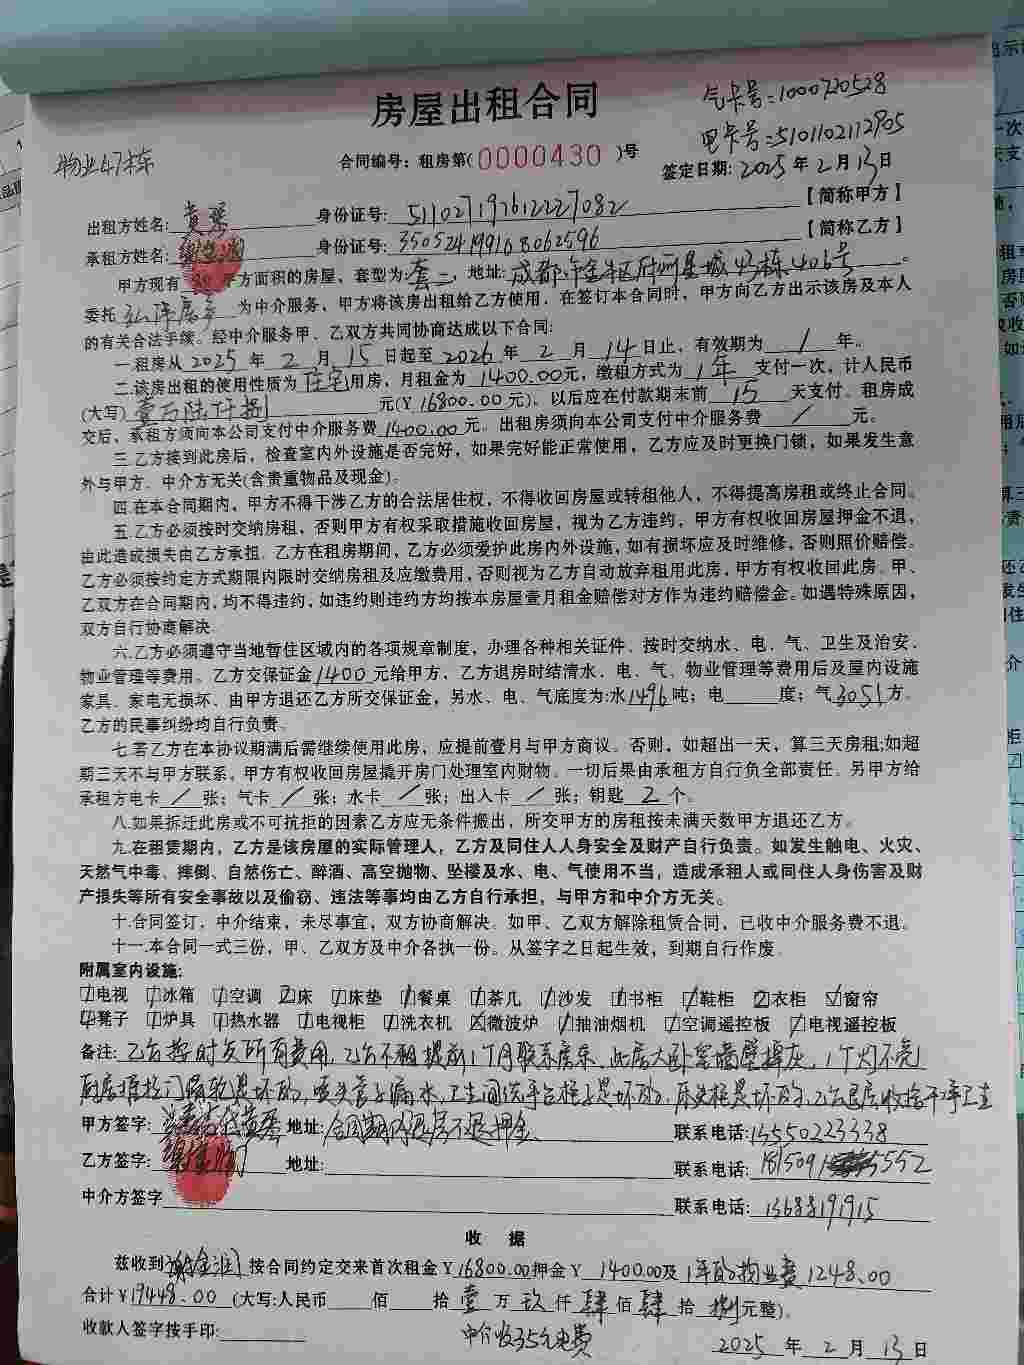 房屋出租合同
气卡号:1000720528
电卡号:5101102112905
物业47栋
合同编号：租房第(0000430)号
签定日期: 2025 年 2 月 13 日
出租方姓名: 黄 身份证号: 511027197612227082 【简称甲方】
承租方姓名: 谢金润 身份证号: 350524199168062596 【简称乙方】
甲方现有 平方面积的房屋，套型为 套二，地址: 成都市金牛区 星城 栋406号。
委托 为中介服务，甲方将该房出租给乙方使用。在签订本合同时，甲方向乙方出示该房及本人
的有关合法手续。经中介服务甲、乙双方共同协商达成以下合同:
一.租房从 2025 年 2 月 15 日起至 2026 年 2 月 14 日止，有效期为 1 年。
二.该房出租的使用性质为 住宅 用房，月租金为 1400.00元，缴租方式为 1年 支付一次，计人民币
(大写) 壹万陆仟捌 元(￥16800.00元)，以后应在付款期末前 15 天支付。租房成
交后，承租方须向本公司支付中介服务费 1400.00 元。出租房须向本公司支付中介服务费 / 元。
三.乙方接到此房后，检查室内外设施是否完好，如果完好能正常使用，乙方应及时更换门锁，如果发生意
外与甲方、中介方无关(含贵重物品及现金)。
四.在本合同期内，甲方不得干涉乙方的合法居住权，不得收回房屋或转租他人，不得提高房租或终止合同。
五.乙方必须按时交纳房租，否则甲方有权采取措施收回房屋，视为乙方违约，甲方有权收回房屋押金不退，
由此造成损失由乙方承担。乙方在租房期间，乙方必须爱护此房内外设施，如有损坏应及时维修，否则照价赔偿。
乙方必须按约定方式期限内限时交纳房租及应缴费用，否则视为乙方自动放弃租用此房，甲方有权收回此房。甲、
乙双方在合同期内，均不得违约，如违约则违约方均按本房屋壹月租金赔偿对方作为违约赔偿金。如遇特殊原因，
双方自行协商解决。
六.乙方必须遵守当地暂住区域内的各项规章制度，办理各种相关证件、按时交纳水、电、气、卫生及治安、
物业管理等费用。乙方交保证金 1400 元给甲方，乙方退房时结清水、电、气、物业管理等费用后及屋内设施
家具、家电无损坏、由甲方退还乙方所交保证金，另水、电、气底度为:水 1496 吨；电 度；气 3051 方。
乙方的民事纠纷均自行负责。
七.若乙方在本协议期满后需继续使用此房，应提前壹月与甲方商议。否则，如超出一天，算三天房租;如超
期三天不与甲方联系，甲方有权收回房屋撬开房门处理室内财物。一切后果由承租方自行负全部责任。另甲方给
承租方电卡 / 张；气卡 / 张；水卡 / 张；出入卡 / 张；钥匙 2 个。
八.如果拆迁此房或不可抗拒的因素乙方应无条件搬出，所交甲方的房租按未满天数甲方退还乙方。
九.在租赁期内，乙方是该房屋的实际管理人，乙方及同住人人身安全及财产自行负责。如发生触电、火灾、
天然气中毒、摔倒、自然伤亡、醉酒、高空抛物、坠楼及水、电、气使用不当，造成承租人或同住人身伤害及财
产损失等所有安全事故以及偷窃、违法等事均由乙方自行承担，与甲方和中介方无关。
十.合同签订，中介结束，未尽事宜，双方协商解决。如甲、乙双方解除租赁合同，已收中介服务费不退。
十一.本合同一式三份，甲、乙双方及中介各执一份。从签字之日起生效，到期自行作废。
附属室内设施:
电视 冰箱 空调 床 床垫 餐桌 茶几 沙发 书柜 鞋柜 衣柜 窗帘
凳子 炉具 热水器 电视柜 洗衣机 微波炉 抽油烟机 空调遥控板 电视遥控板
备注: 乙方按时交所有费用，乙方不租提前1个月联系房东，此房大卧室墙壁掉灰，1个灯不亮
厨房推拉门 是坏的，喷头管子漏水，卫生间洗手台柜子是坏的，床头柜是坏的，乙方退房收拾干净卫生
甲方签字: 地址: 合同期内退房不退押金 联系电话: 13550223338
乙方签字: 谢金润 地址: 联系电话: 1815091 5552
中介方签字 联系电话: 13688191915
收 据
兹收到 谢金润 按合同约定交来首次租金￥16800.00押金￥ 1400.00及 1年的物业费 1248.00
合计￥19448.00 (大写:人民币 佰 拾 壹 万 玖 仟 肆 佰 肆 拾 捌 元整)。
收款人签字按手印: 中介收35元电费
2025 年 2 月 13 日